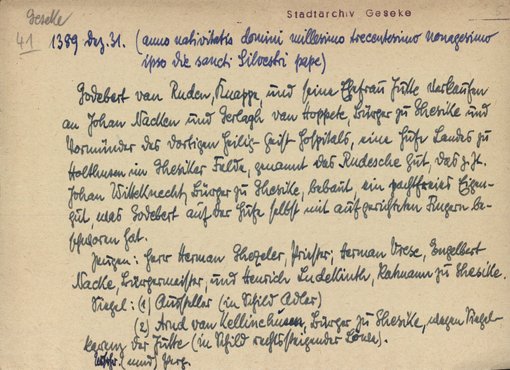 Geseke
Stadtarchiv Geseke
41
1389 Dez. 31. (anno nativitatis domini millesimo trecentesimo nonagesimo
ipso die sancti Silvestri pape)
Godebert van Ruden, Knappe, und seine Ehefrau Jutte verkaufen
an Johan Nacken und Gerlagh van Hoppeke, Bürger zu Ghesike und
Vormünder des dortigen Heilig-Geist-Hospitals, eine Hufe Landes zu
Holthusen im Ghesiker Felde, genannt das Rudesche Gut, das z. Zt.
Johan Witteknecht, Bürger zu Ghesike, bebaut, ein pachtfreies Eigen-
gut, was Godebert auf der Hufe selbst mit aufgerichteten Fingern be-
schworen hat.
Zeugen: Herr Herman Ghozeler, Priester; Herman Vrese, Engelbert
Nacke, Bürgermeister, und Henrich Ludekinth, Ratmann zu Ghesike.
Siegel: (1) Aussteller (in Schild Adler)
(2) Arnd van Kellinchusen, Bürger zu Ghesike, wegen Siegel-
karenz der Jutte (in Schild rechtssteigender Löwe).
(mnd) Perg.